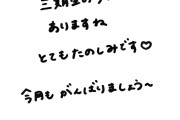 三期生の
ありますね
とてもたのしみです♡
今月もがんばりましょう〜